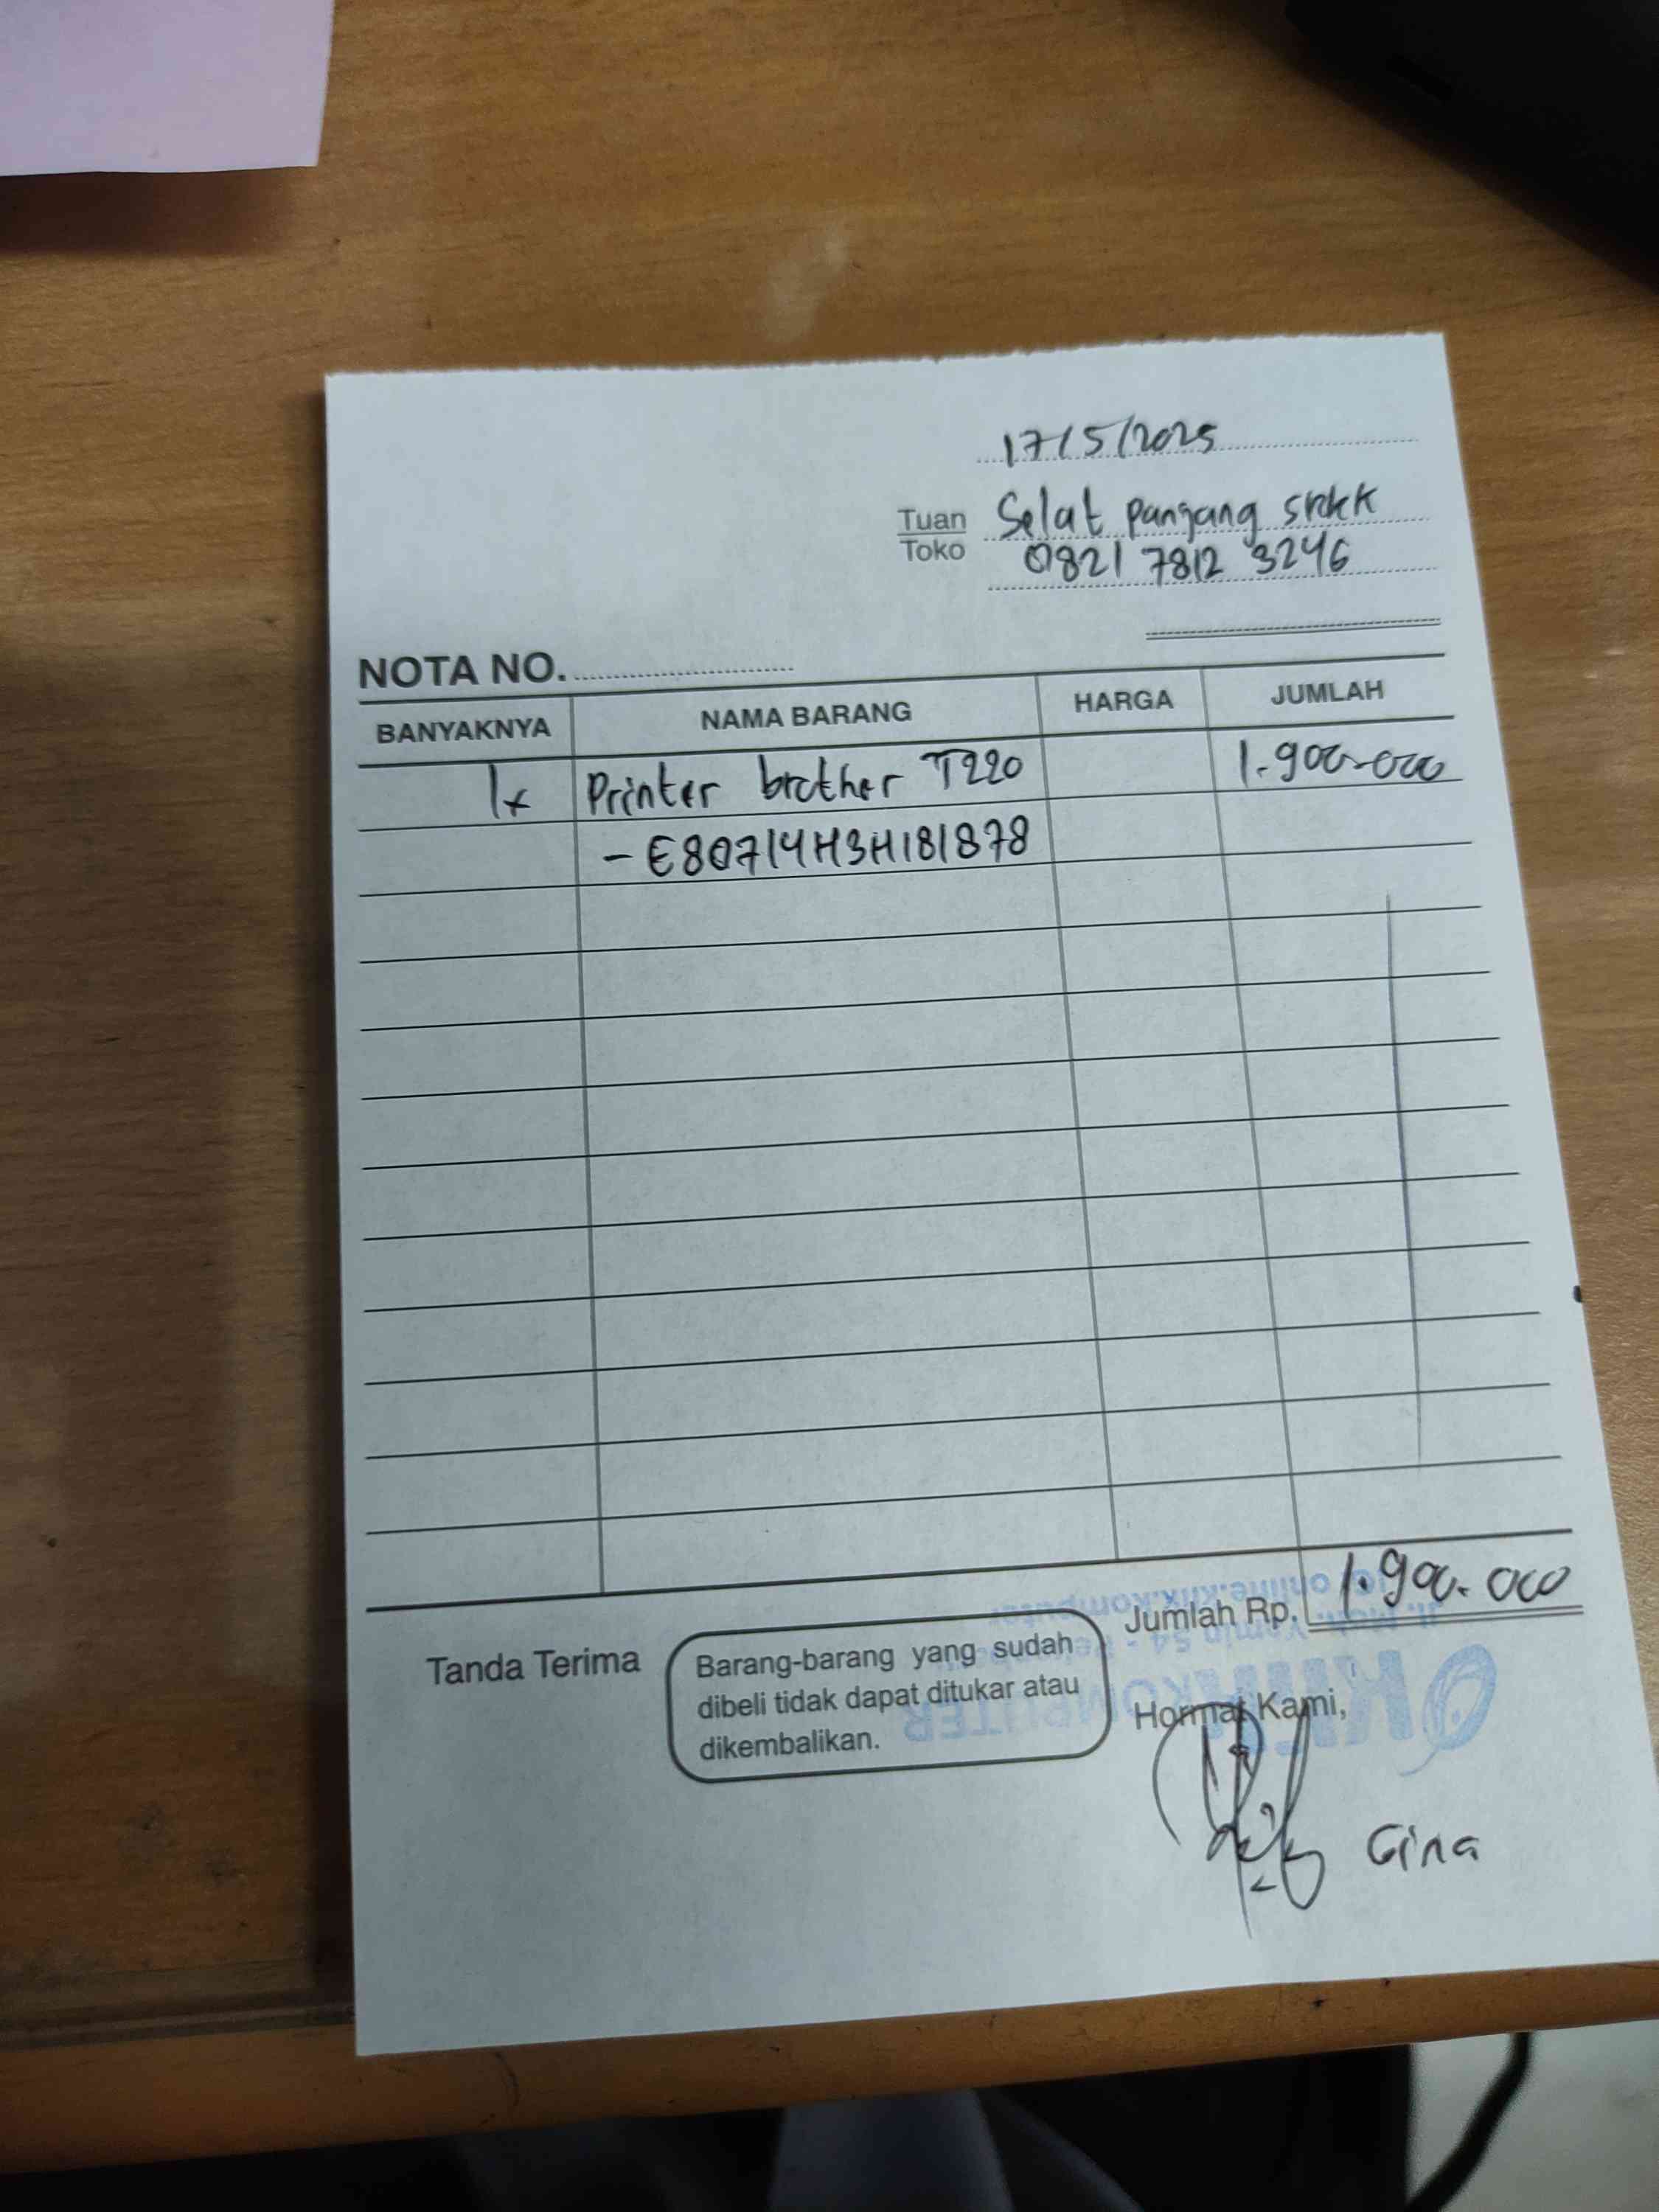 17/5/2025
Tuan Selat panjang
Toko 0821 7812 3246
NOTA NO.
BANYAKNYA NAMA BARANG HARGA JUMLAH
1x Printer brother T220 1.900.000
- E80714H3H181878
Jumlah Rp. 1.900.000
Tanda Terima
Barang-barang yang sudah
dibeli tidak dapat ditukar atau
dikembalikan.
Hormat Kami,
Gina